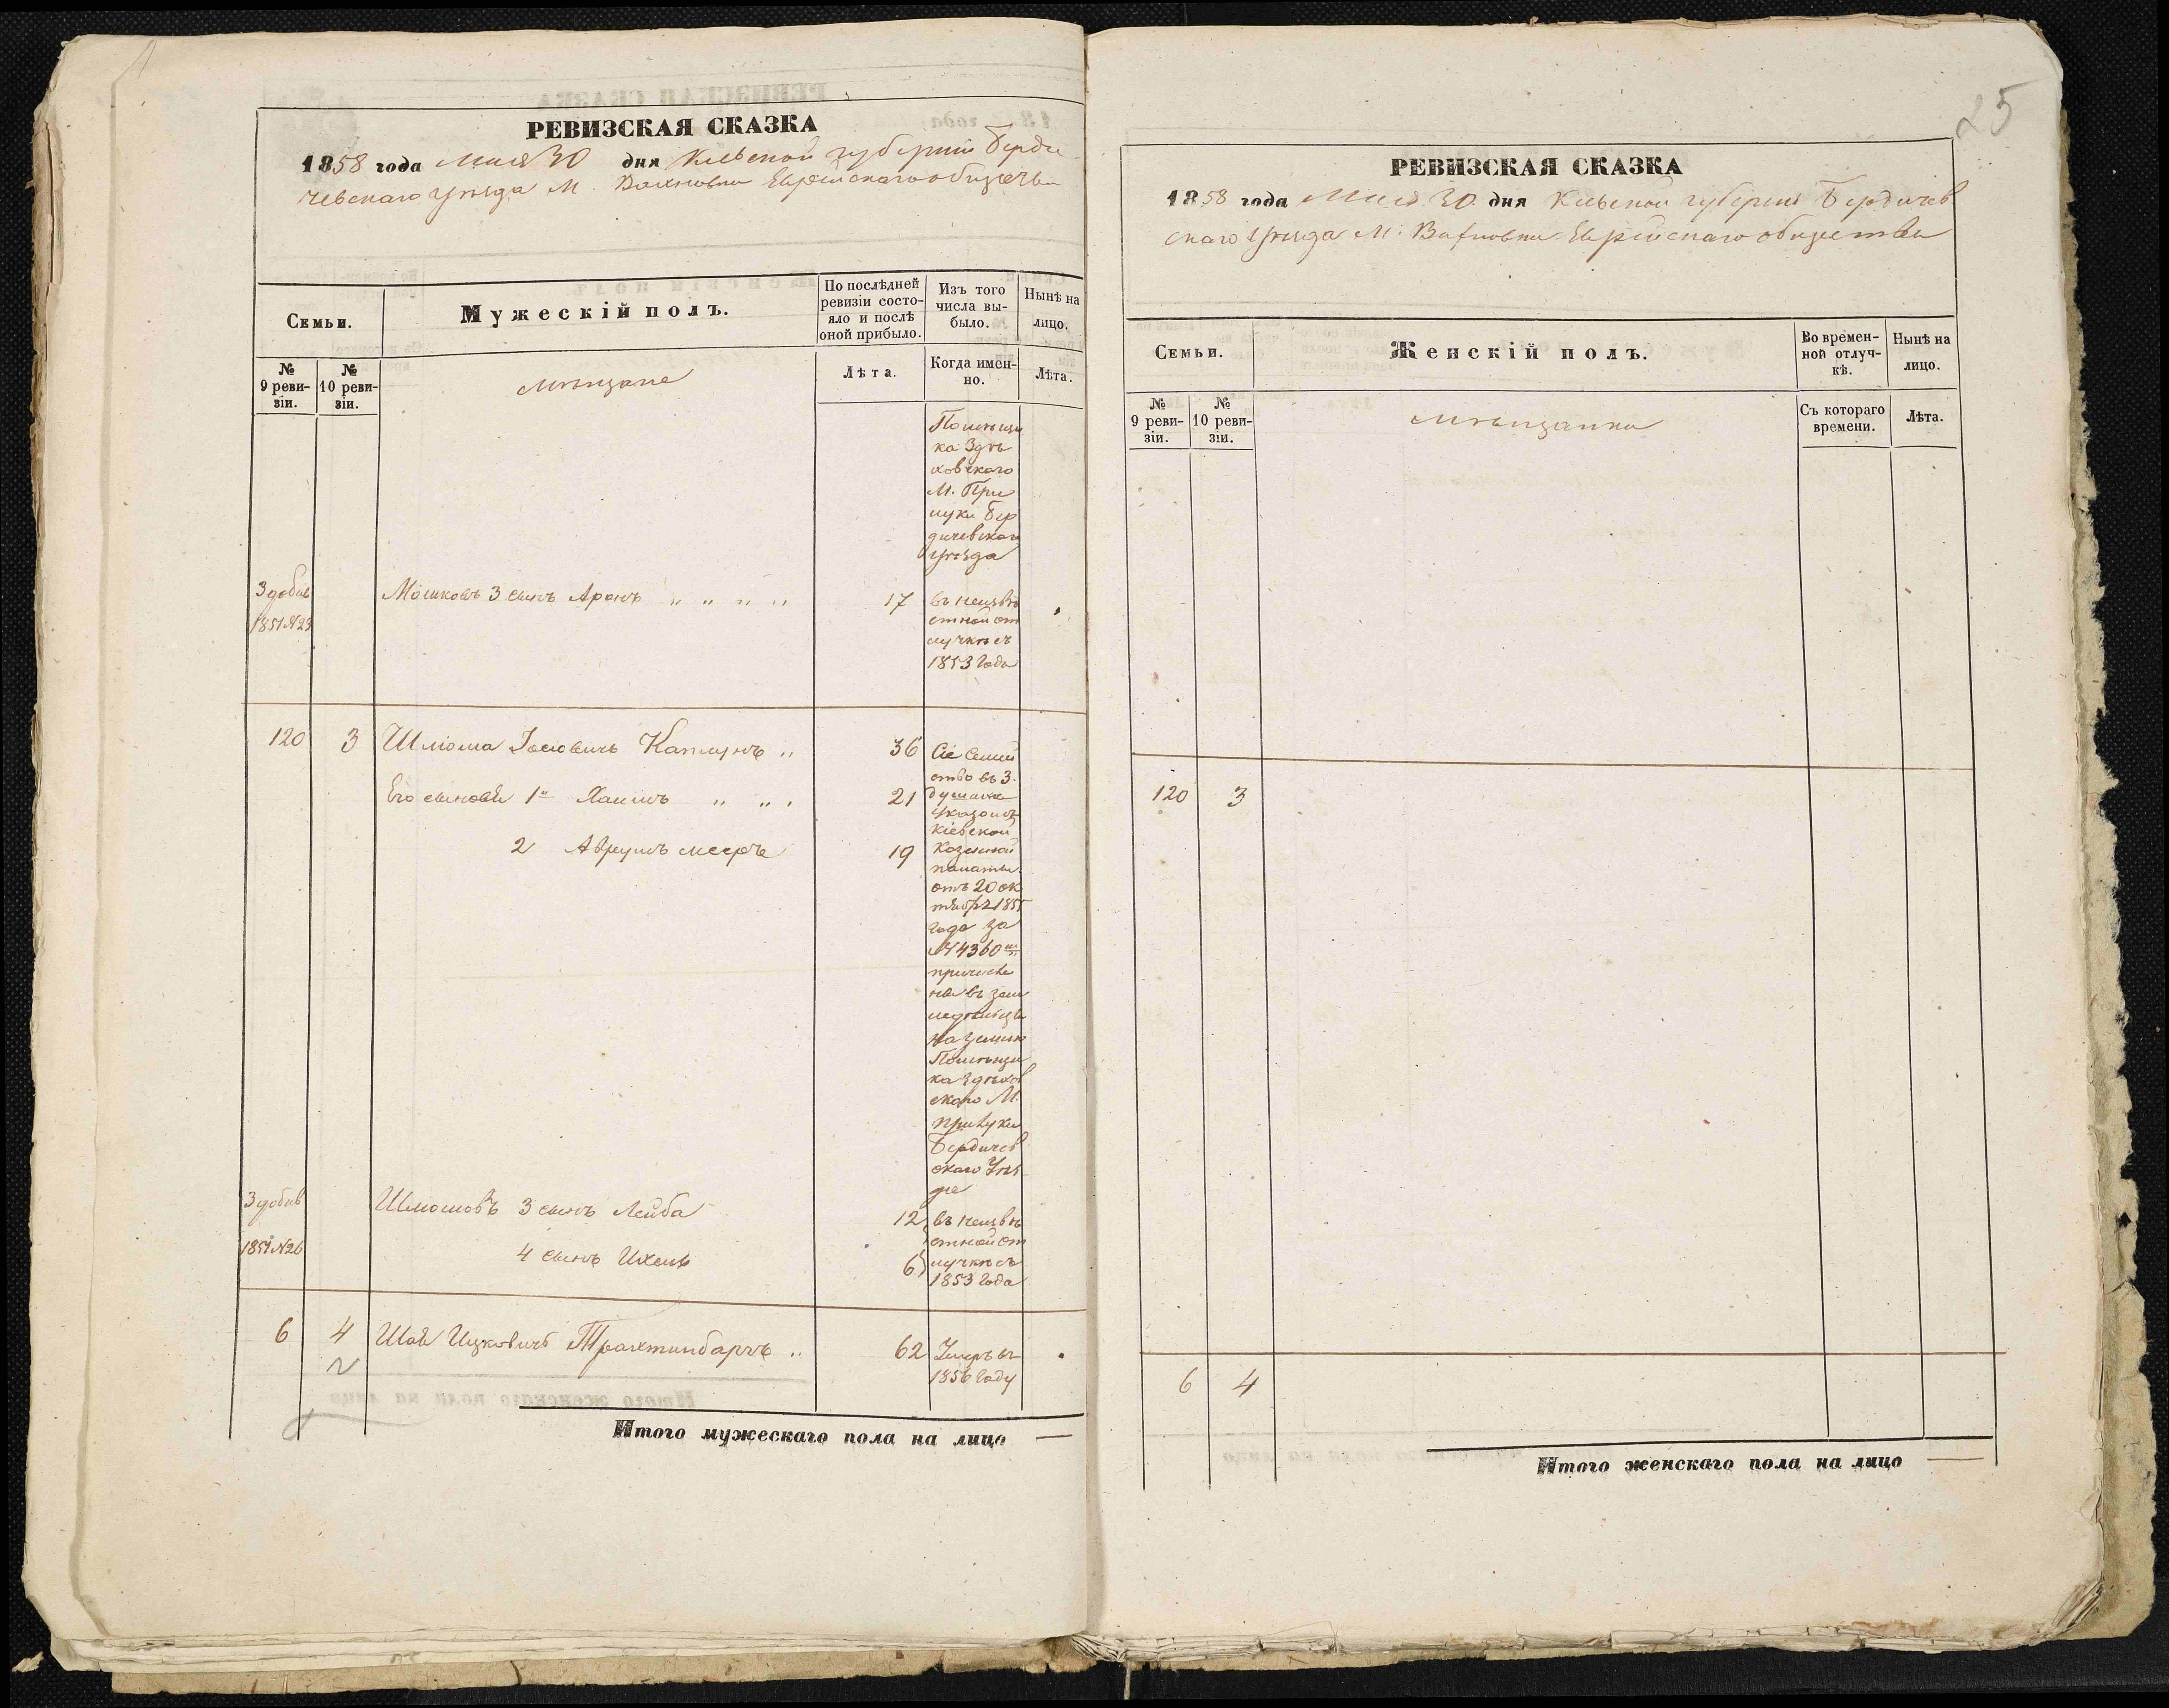 РЕВИЗСКАЯ СКАЗКА
1858 года Мая 30 дня Кіевской губерніи Берди
чевскаго уѣзда М. Вахновки Еврейскаго общества
Семьи.
Мужескій полъ.
По послѣдней
ревизіи состо-
яло и послѣ
оной прибыло.
Изъ того
числа вы-
было.
Нынѣ на
лицо.
№
9 реви-
зіи.
№
10 реви-
зіи.
мѣщане
Лѣта.
Когда имен-
но.
Лѣта.
Помѣщи
ка Здѣ
ховскаго
М. При
луки Бер
дичевскаго
уѣзда
3 добав
1851 №23
Мошковъ 3 сынъ Аронъ " " " "
17
въ неизвѣ
стной от
лучкѣ съ
1853 года
120 3 Шлиома Іосіовичъ Каплунъ " 36
Его сыновья 1й Хаимъ " " " 21
2 Аврумъ мееръ 19
Сіе Семей
ство въ 3.
душахъ
Указомъ
Кіевской
Казенной
палаты
отъ 20 ок
тября 1855
года за
№ 4360
причисле
на въ зем
ледѣльцы
на землю
Помѣщи
ка Здѣхов
скаго М.
Прилуки
Бердичев
скаго Уѣз
да
3 добав
1851 №26
Шлиомовъ 3 сынъ Лейба 12
4 сынъ Ихель 6
въ неизвѣ
стной от
лучкѣ съ
1853 года
6 4 Шая Ицковичъ Трахтинбаргъ " 62
Умеръ въ
1856 году
Итого мужескаго пола на лицо —
25
РЕВИЗСКАЯ СКАЗКА
1858 года Мая 30 дня Кіевской губерніи Бердичев
скаго уѣзда М. Вахновки Еврейскаго общества
Семьи.
Женскій полъ.
Во времен-
ной отлуч-
кѣ.
Нынѣ на
лицо.
№
9 реви-
зіи.
№
10 реви-
зіи.
мѣщанки
Съ котораго
времени.
Лѣта.
120 3
6 4
Итого женскаго пола на лицо —